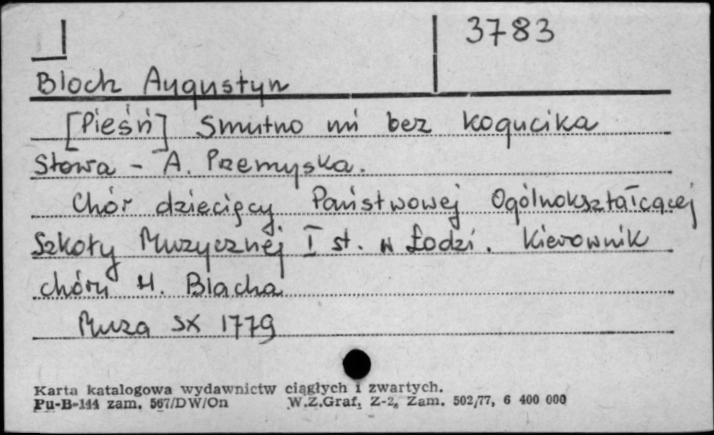 3783
Bloch Augustyn
[Pieśń] Smutno mi bez kogucika
Słowa - A. Przemyska.
Chór dziecięcy Państwowej Ogólnokształcącej
Szkoły Muzycznej I st. w Łodzi. Kierownik
chóru H. Blacha
Muza SX 1779
Karta katalogowa wydawnictw ciągłych i zwartych.
Pu-B-144 zam. 567/DW/On W.Z.Graf. Z-2, Zam. 502/77, 6 400 000